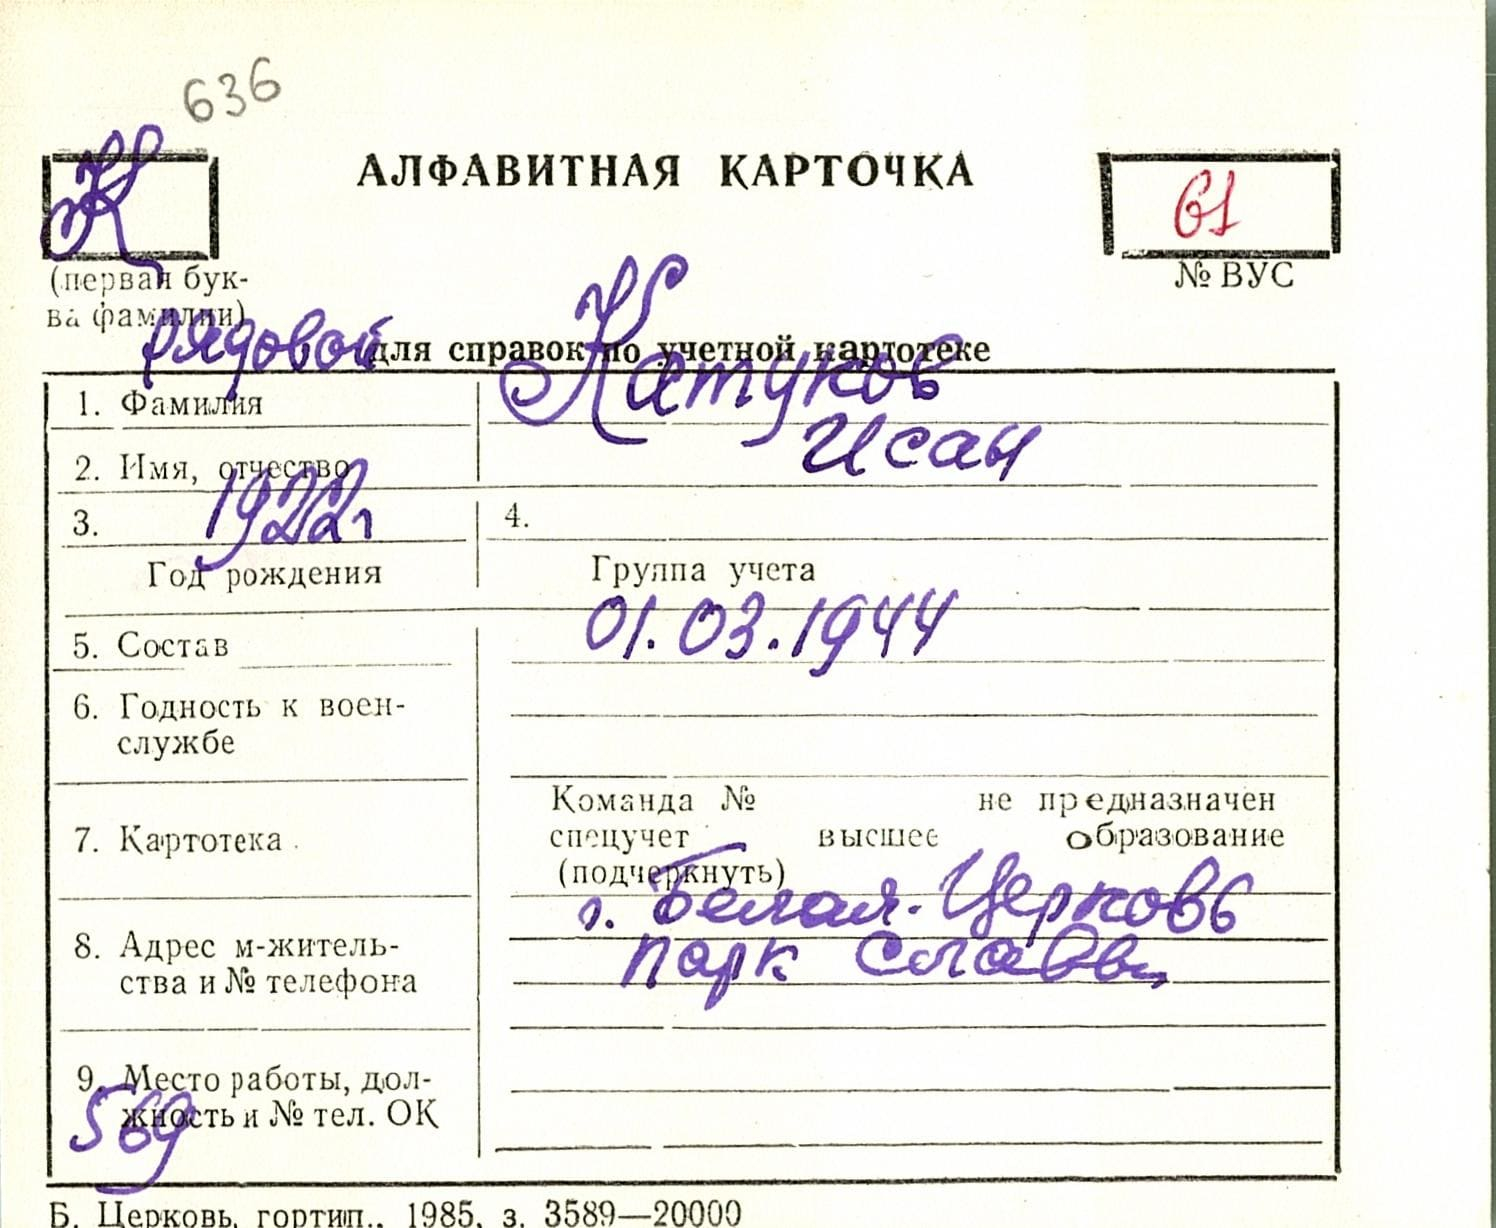 636
К
АЛФАВИТНАЯ КАРТОЧКА
61
(первая бук-
ва фамилии)
№ ВУС
рядовой
для справок по учетной картотеке
1. Фамилия
Катуков
2. Имя, отчество
Исан
3.
1922г
4.
Год рождения
Группа учета
5. Состав
01.03.1944
6. Годность к воен-
службе
Команда № не предназначен
7. Картотека
спецучет высшее образование
(подчеркнуть)
г. Белая-Церковь
8. Адрес м-житель-
парк Славы
ства и № телефона
9. Место работы, дол-
жность и № тел. ОК
569
Б. Церковь, гортип., 1985, з. 3589—20000